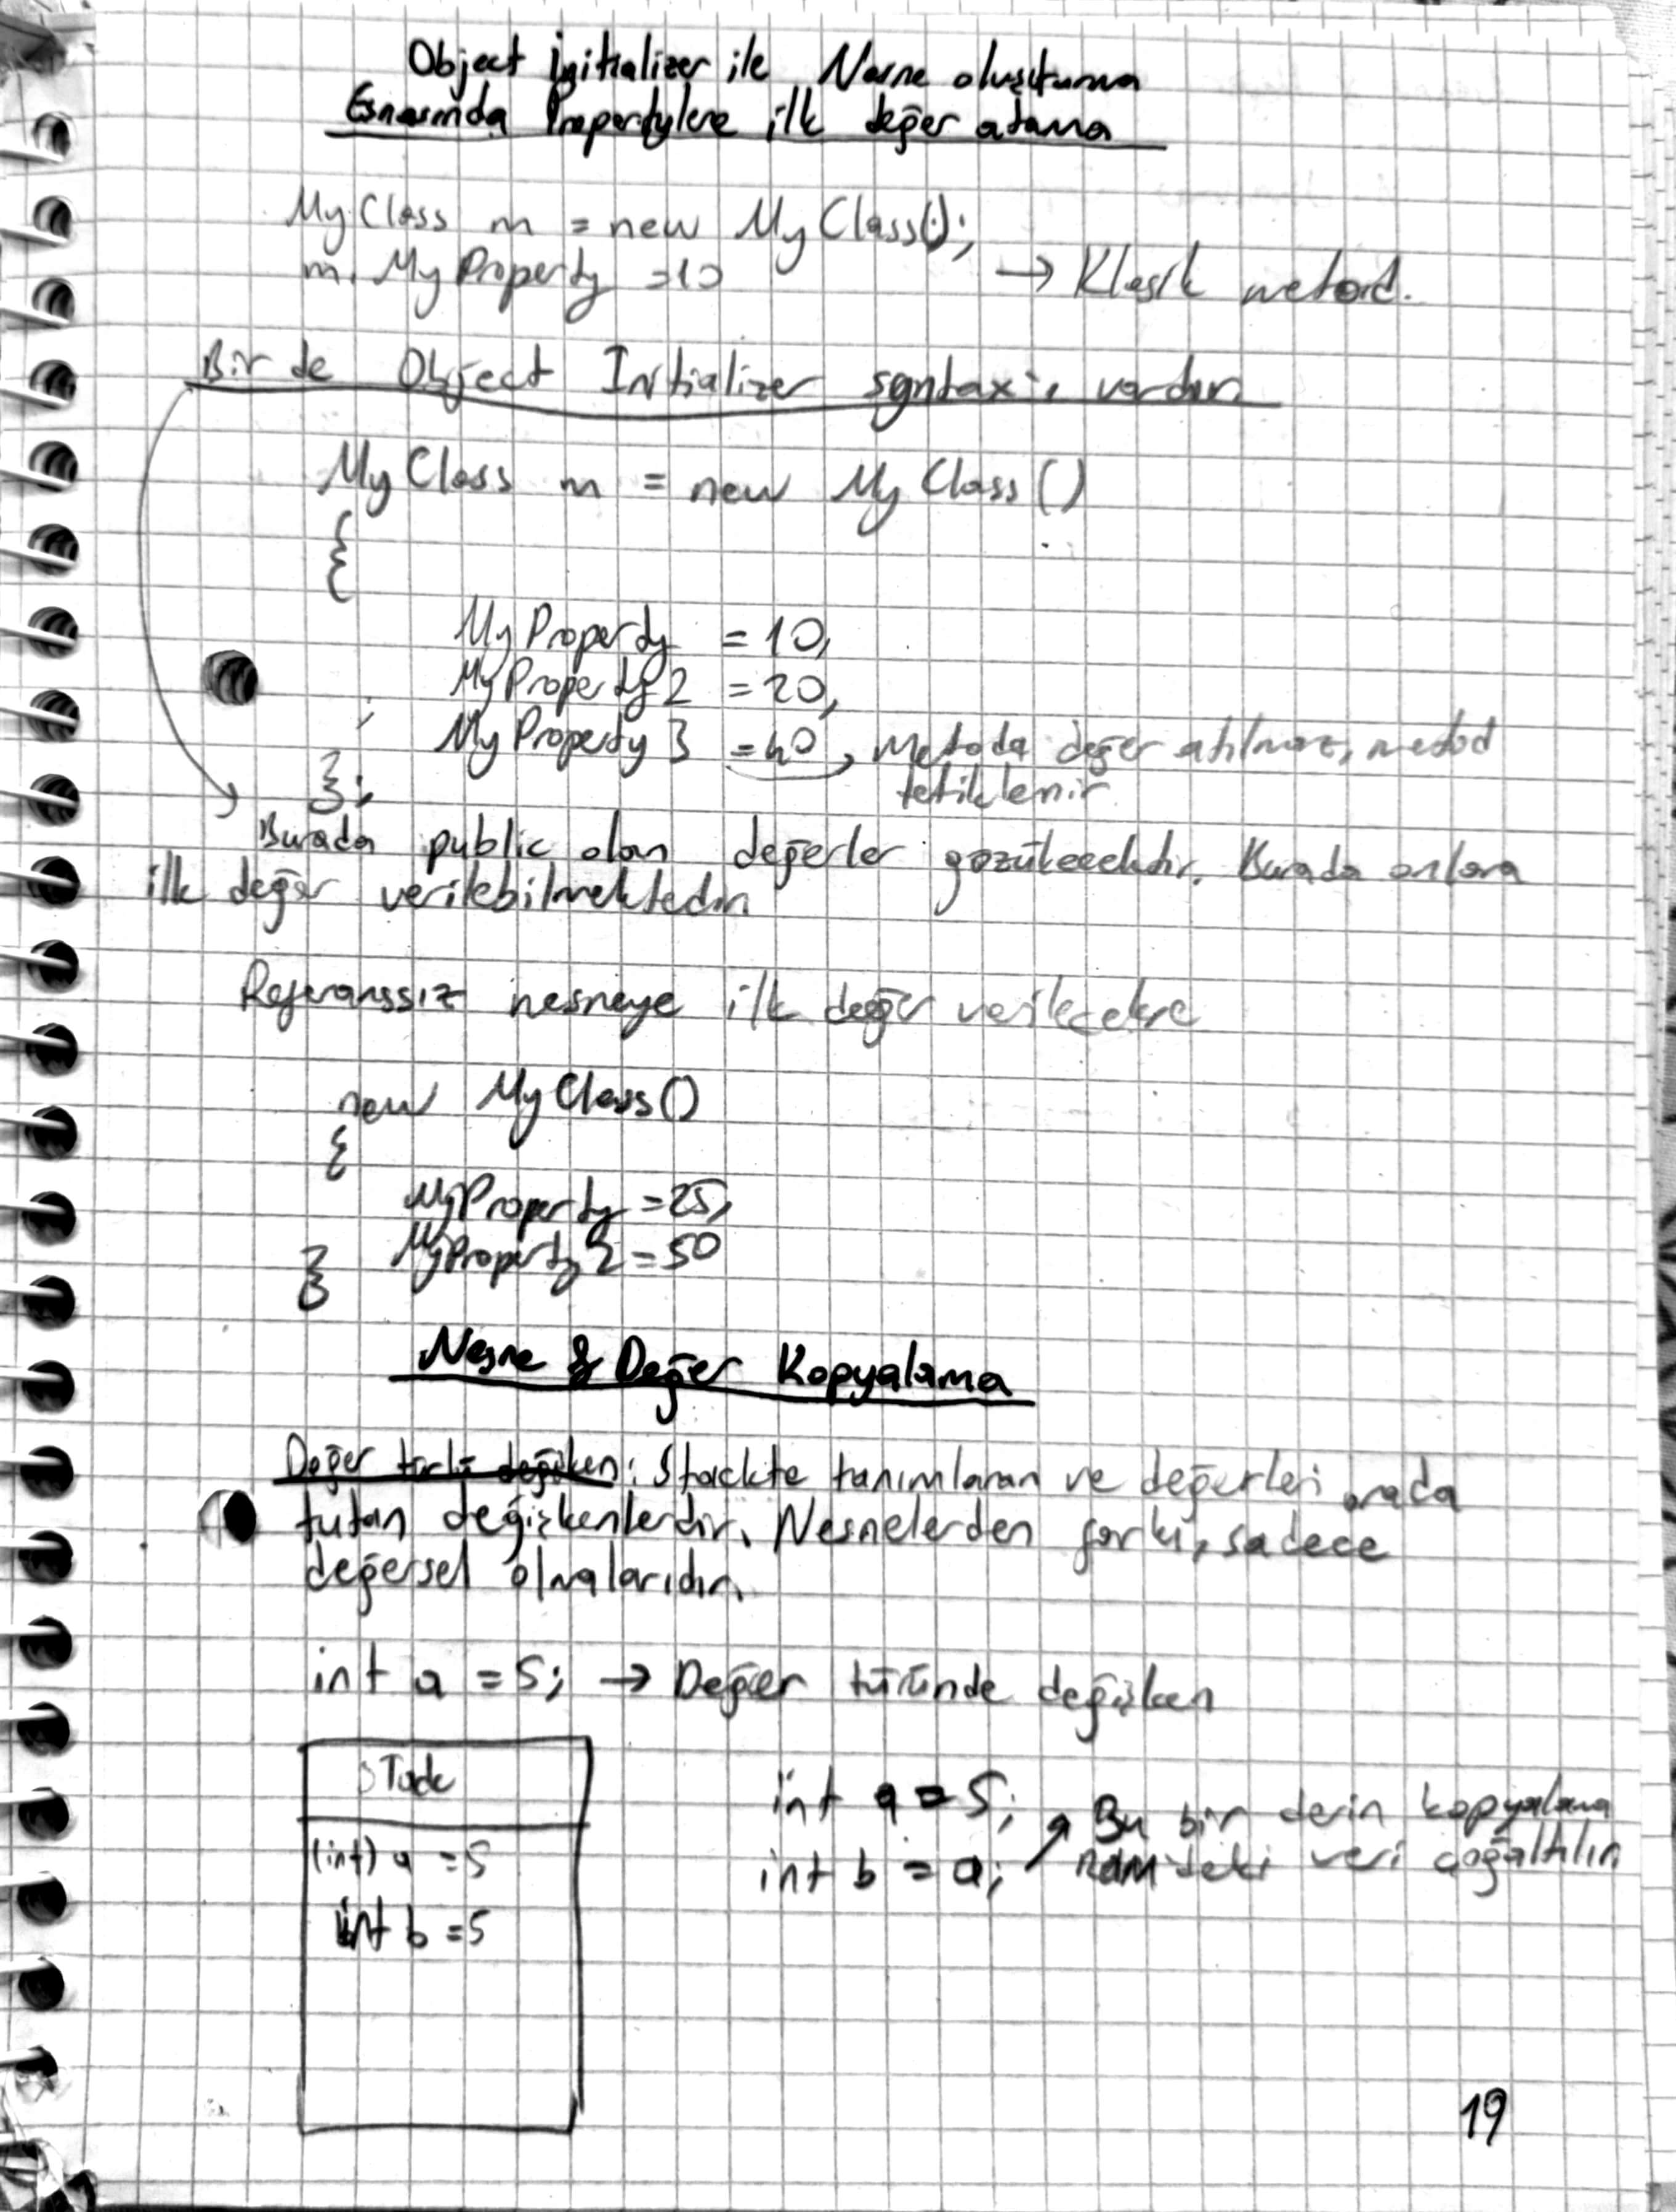 Object initializer ile Nesne oluşturma
Esnasında Propertylere ilk değer atama
MyClass m = new MyClass();
m.MyProperty =10 → Klasik metod.
Bir de Object Initializer syntax'ı vardır.
MyClass m = new MyClass()
{
MyProperty = 10,
MyProperty2 = 20,
MyProperty3 = 40, Metoda değer atılmaz, metod
tetiklenir
};
Burada public olan değerler gözükecektir. Burada onlara
ilk değer verilebilmektedir.
Referanssız nesneye ilk değer verilecekse
new MyClass()
{
MyProperty =25,
MyProperty2 = 50
}
Nesne & Değer Kopyalama
Değer türlü değişken: Stackte tanımlanan ve değerleri orada
tutan değişkenlerdir. Nesnelerden farkı, sadece
değersel olmalarıdır.
int a = 5; → Değer türünde değişken
STack
(int) a = 5
int b = 5
int a = 5;
int b = a; → Bu bir derin kopyalama
RAM'deki veri çoğaltılır
19